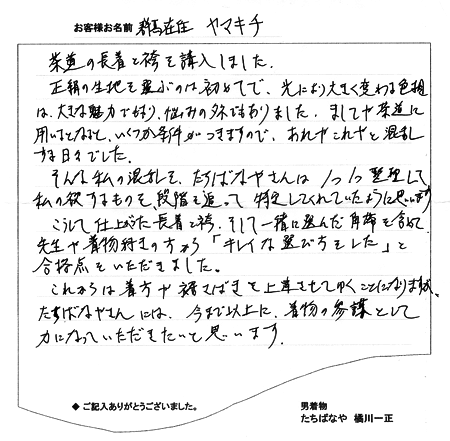 お客様お名前 群馬在住 ヤマキチ
茶道の長着と袴を購入しました。
正絹の生地を選ぶのは初めてで、光により大きく変わる色相
は、大きな魅力であり、悩みの外でもありました。ましてや茶道に
用いるとなると、いくつか条件がつきますので、あれやこれやと混乱
する日々でした。
そんな私の混乱を、たちばなやさんは1つ1つ整理して
私の欲するものを段階を追って特定してくれていたように思います
こうして仕上がった長着と袴、そして一緒に選んだ角帯を含めて
先生や着物好きの方から「キレイな選び方をした」と
合格点をいただきました。
これからは着方や裾さばきを上達させてゆくことになりますが、
たちばなやさんには、今まで以上に、着物の参謀として
力になっていただきたいと思います。
◆ ご記入ありがとうございました。
男着物
たちばなや 橘川一正